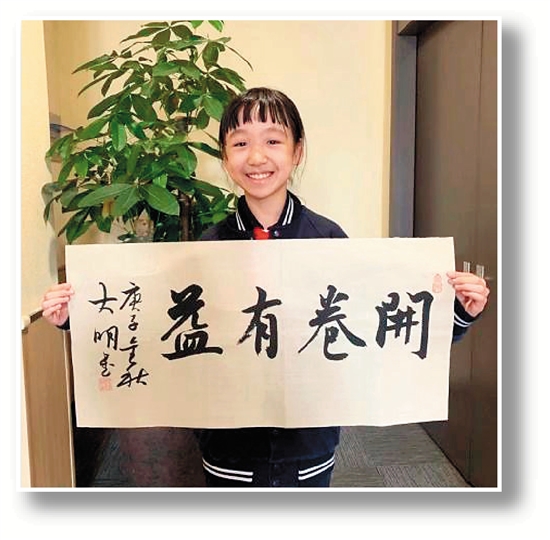 開卷有益
庚子金秋
大明書